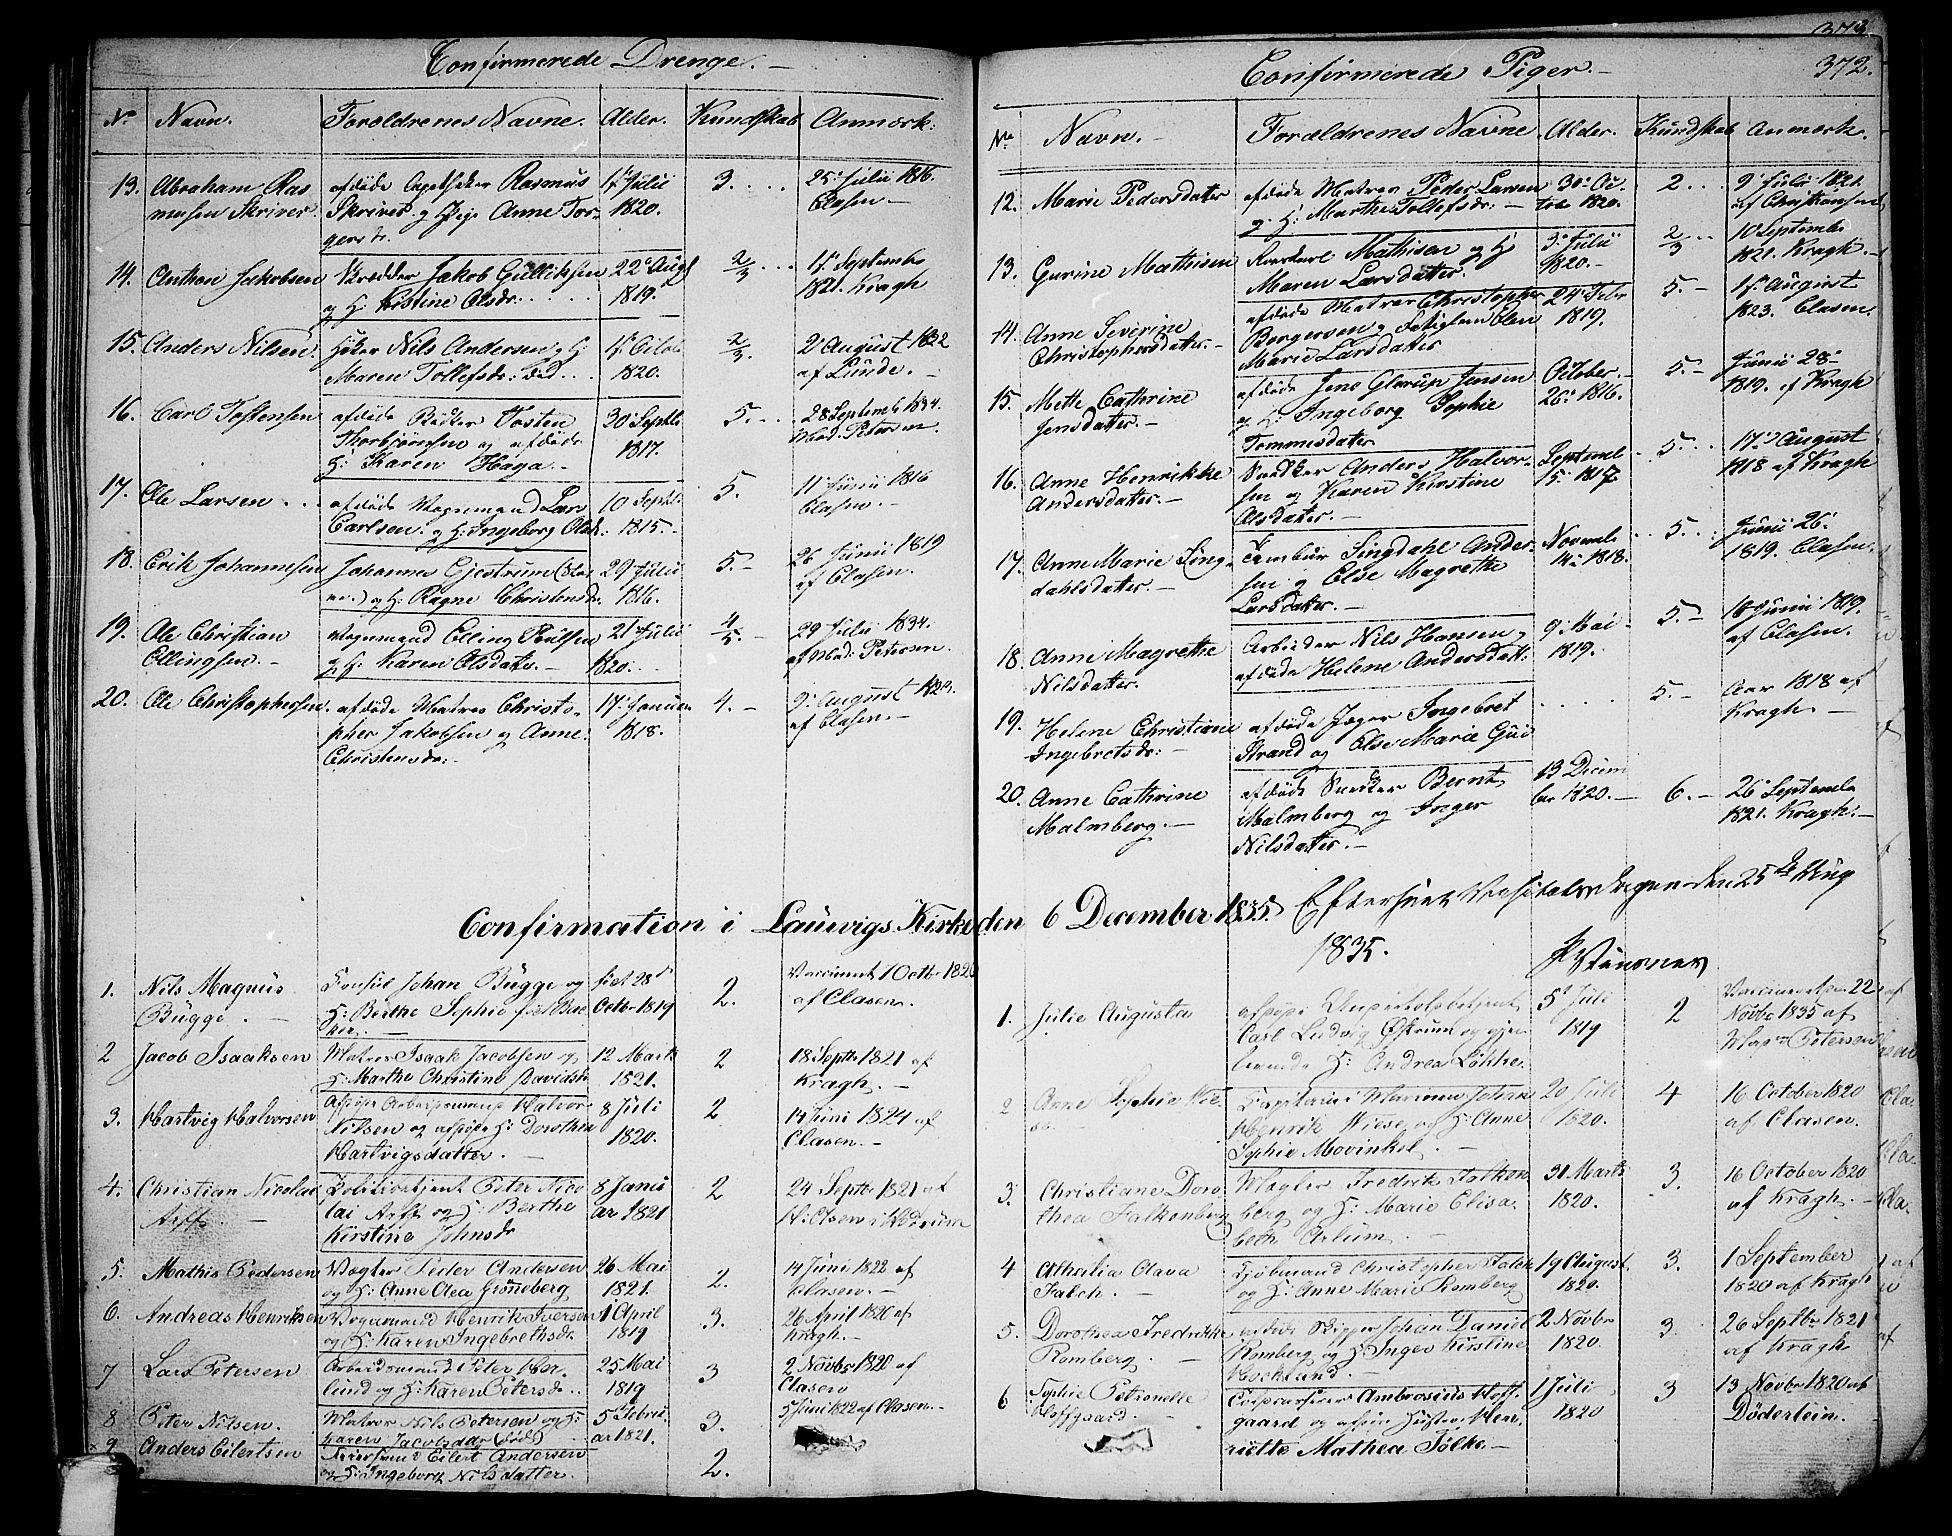 Confirmerede Drenge. -
No Navn. Forældrenes Navne. Alder. Kundskab Anmærk:
13. Abraham Ras afdøde Apotheker Rasmus 17 Julii 3. . . . 25 Julii 1816.
musen Skriver. Skriver og Anne Tor 1820. Clasen. -
gersdr.
14. Anthon Jakobsen Skrædder Jakob Gulliksen 22 Augt 2/3 . . . Septembr
og H: Kistine Olsdr. . . . . 1819. 1821. Kragh
15. Anders Nilsen. Nils Andersen og H: Octob 2/3. 2 August 1832
Maren Tollefsdr: . . 1820. af Lunde. -
16. Carl Tostensen afdøde Bødker Tosten 30 Septb 5. - . . 28 Septemb 1834.
Thorbjørnsen og afdøde 1817. Mad. Petersen.
H: Karen Haga. -
17. Ole Larsen . . . afdøde Vognmand Lars 10 Septb. 5. 11 Junii 1816
Carlsen. og H: Ingeborg Olsdr: 1815. - Clasen. -
18. Erik Johannesen Johannes Gjestrum 29 Julii 5. - 26 Junii 1819
og H: Ragne Christensdr. 1816. af Clasen.
19. Ole Christian Vognmand Elling Poulsen 21 Julii 4/5. - 29 Julii 1834.
Ellingsen. - og H: Karen Olsdatr. - 1820. . . . af Mad: Petersen.
20. Ole Christophersen. afdøde Matros Christo- 17 Januar 4. - 9 August 1823.
pher Jakobsen og Anne 1818. af Clasen. -
Christensdr: -
Confirmerede Piger. - 372.
No Navn. - Forældrenes Navne Alder. Kundskab Anmærk.
12. Marie Pedersdatter afdøde Matros Peder Larsen 30 Oc- 2 . . . 9 Julii 1821
og H: Marthe Tollefsdr: - tob 1820. af Christiansen
13. Gurine Mathisen Mathisen og H: 3 Julii 2/3 . . . 10 Septembr
Maren Larsdatter. 1820. - 1821. Kragh. -
14. Anne Severine afdøde Matros Christopher 24 Febr 5. - August
Christophersdatter. - Borgersen og Ellen 1819. 1823. Clasen.
Marie Larsdatter
15. Mette Cathrine afdøde Jens Glarup Jensen October. - 5. - Junii 28
Jensdatter. - og H: Ingeborg Sophie 26 1816. 1819. af Kragh
Tommesdatter
16. Anne Henrikke Snedker Anders Halvor- Septemb 5. . . . 17 August
Andersdatter. - sen og Karen Kirstine 15 1817. 1818 af Kragh
Olsdatter. -
17. Anne Marie Sing- Tambur Singdahl Ander- Novemb . . 5. . . . Junii 26
dahlsdatter. - sen og Else Magrethe 14 1818. 1819. Clasen.
Larsdatter. -
18. Anne Magrethe Arbeider Nils Hansen og 9 Mai 5. - 18 Junii 1819.
Nilsdatter. afdøde Helene Andersdatt: 1819. af Clasen.
19. Helene Christiane afdøde Jæger Ingebret . . . . . 5. - Aar 1818 af
Ingebretsdr: - Strand og Else Marie Kragh. -
20. Anne Cathrine afdøde Snedker Bernt 13 Decem 6. - 26 Septemb
Malmberg. - Malmberg og Inger ber 1820. - 1821. Kragh. -
Nilsdatter. -
Confirmation i Laurvigs Kirke den 6 December 1835. den 25 Aug
1835.
1. Nils Magnus Consul Johan Bugge og født 28 2. Vaccineret 1 Octbr 1820
Bugge. - H: Berthe Sophie født Octbr 1819 af Clasen.
2 Jacob Isaaksen Matros Isaak Jacobsen og 12 Marts 2 18 Septbr 1821 af
H: Marthe Christine Davidsdr 1821. Kragh. -
3. Hartvig Halvorsen Halvor 8 Juli 2 14 Juni 1824 af
Nilsen og H: Dorothea 1820. Clasen. -
Hartvigsdatter. -
4. Christian Nicolai Politibetjent Peter Nico 8 Janu 2 24 Septbr 1821 af
Arff. - lai Arff og H: Berthe ar 1821 H: Clasen i Hedrum
Kirstine Johnsdr
5. Mathis Pedersen Vægter Peder Andersen 26 Mai 2. 14 Juni 1822 af
og H: Anne Olea Grøneberg 1821. Clasen. -
6. Andreas Henriksen Vognmand Henrik Iversen 1 April 3. 26 April 1820 af
og H: Karen Ingebrethsdr. 1819 Kragh. -
7 Lars Petersen Arbeidsmand Peter Her- 25 Mai 3 2 Novbr 1820 af
lund og H: Karen Petersdr. 1819 Clasen
8 Peter Nilsen. Matros Nils Petersen og H: 5 Febru 3. 5 Juni 1822 af Clasen. -
Karen Jacobsdr (død) ar 1821.
9 Anders Eilertsen Eilert Andersen 2.
og H: Ingeborg Nilsdatter.
1. Julie Augusta 5 Juli 2 Vaccineret den 22
Carl Ludvig Østrum og 1819 Novbr 1835 af
H: Andrea Løkke. Petersen
2 Anne Sophie Wie- Capitain i Marinen Johan 20 Juli 4 16 October 1820
se. Henrik Wiese og H: Anne 1820. af Clasen.
Sophie Movinkel. -
3. Christiane Doro Mægler Fredrik Falken 31 Marts 3. 16 October 1820
thea Falkenberg berg og H: Marie Elisa 1820. af Kragh. -
beth Arlum. -
4 Athsilia Olava Kjøbmand Christopher Falch 19 August 3. 1 September
Falch. - og H: Anne Marie Romberg 1820. 1820 af Kragh
5. Dorothea Fredrikke afdøde Skipper Johan Daniel 2 Novbr 3 26 Septbr 1821
Romberg. - Romberg og H: Inger Kirstine 1820. af Kragh
Hockland. -
6 Sophie Petronelle Ambrosius Hoff- 1 Juli 3 13 Novbr 1820 af
Hoffgaard. - gaard og Hustru Hen- 1820 Døderlein. -
riette Mathea Tølke. -